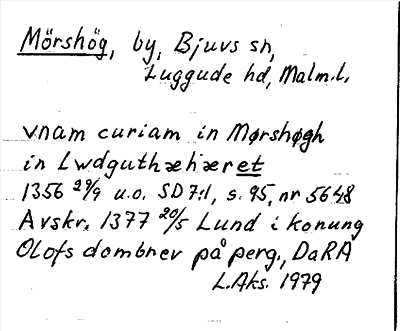 Mörshög, by, Bjuvs sn,
Luggude hd, Malm.l.
vnam curiam in Mørshøgh
in Lwdguthæhæret
1356 29/9 u.o. SD 7:1, s. 95, nr 5648
Avskr. 1377 20/5 Lund i konung
Olofs dombrev på perg., DaRA
L.Aks. 1979